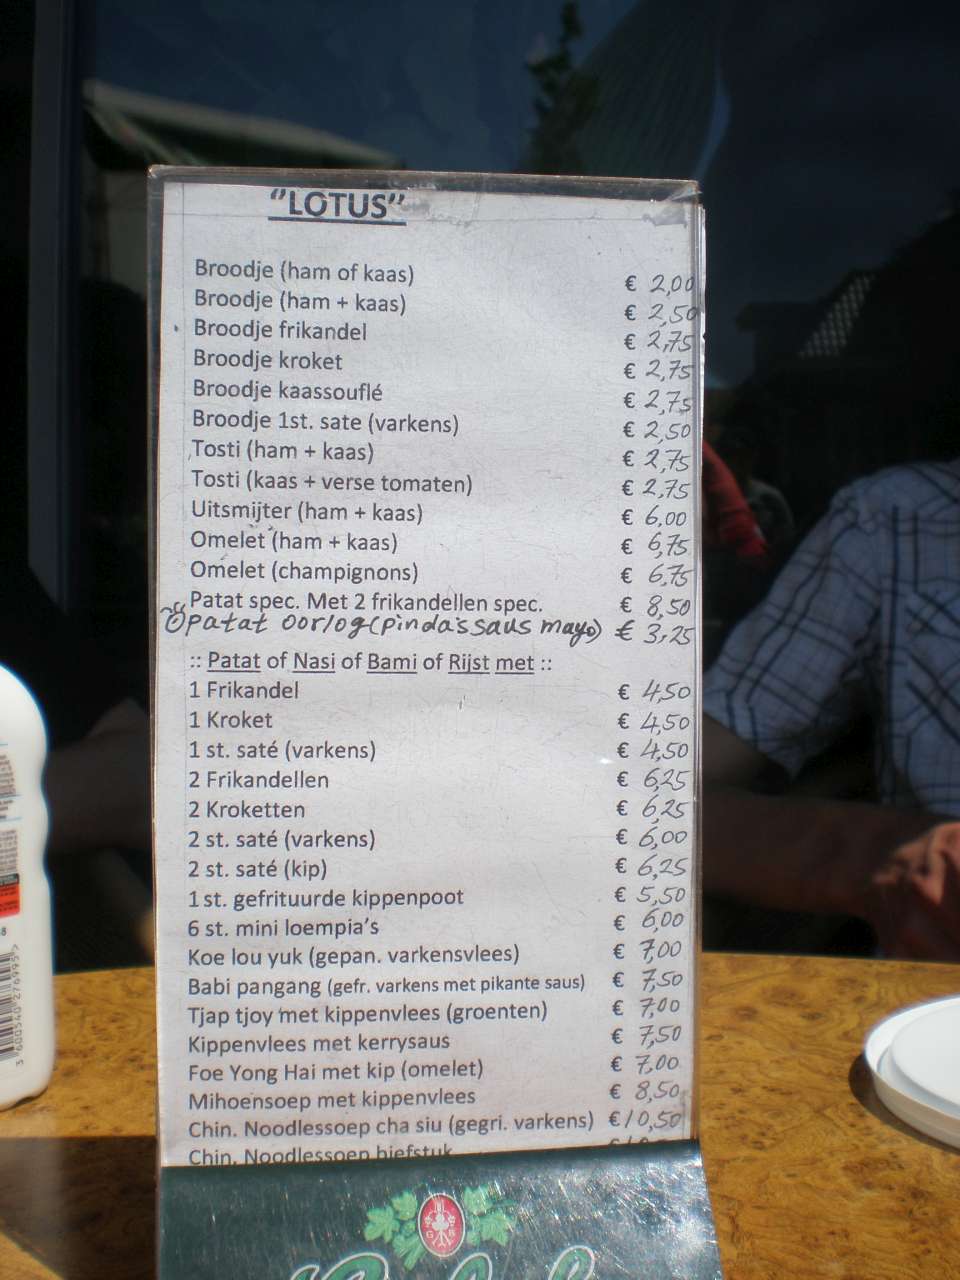 "LOTUS"
Broodje (ham of kaas) € 2,00
Broodje (ham + kaas) € 2,50
Broodje frikandel € 2,75
Broodje kroket € 2,75
Broodje kaassouflé € 2,75
Broodje 1st. sate (varkens) € 2,50
Tosti (ham + kaas) € 2,75
Tosti (kaas + verse tomaten) € 2,75
Uitsmijter (ham + kaas) € 6,00
Omelet (ham + kaas) € 6,75
Omelet (champignons) € 6,75
Patat spec. Met 2 frikandellen spec. € 8,50
Patat oorlog (pinda's saus mayo) € 3,25
:: Patat of Nasi of Bami of Rijst met ::
1 Frikandel € 4,50
1 Kroket € 4,50
1 st. saté (varkens) € 4,50
2 Frikandellen € 6,25
2 Kroketten € 6,25
2 st. saté (varkens) € 6,00
2 st. saté (kip) € 6,25
1 st. gefrituurde kippenpoot € 5,50
6 st. mini loempia's € 6,00
Koe lou yuk (gepan. varkensvlees) € 7,00
Babi pangang (gefr. varkens met pikante saus) € 7,50
Tjap tjoy met kippenvlees (groenten) € 7,00
Kippenvlees met kerrysaus € 7,50
Foe Yong Hai met kip (omelet) € 7,00
Mihoensoep met kippenvlees € 8,50
Chin. Noodlessoep cha siu (gegri. varkens) € 10,50
Chin. Noodlessoep biefstuk
G B
3 600540 276995>